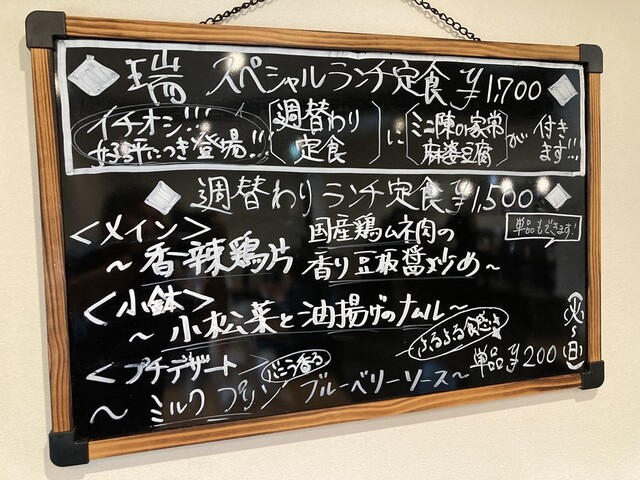 瑞 スペシャルランチ定食 ¥1,700
イチオシ!!! 好評につき登場!! 週替わり定食 に ミニ陳の家常麻婆豆腐 が 付きます!!
週替わりランチ定食 ¥1,500
<メイン> 国産鶏ムネ肉の 単品もできます!
~香辣鶏片 香り豆板醤炒め~
<小鉢>
~小松菜と油揚げのナムル~
<プチデザート> バニラ香る ぷるぷる食感 単品¥200 (火~日)
~ミルクプリン ブルーベリーソース~